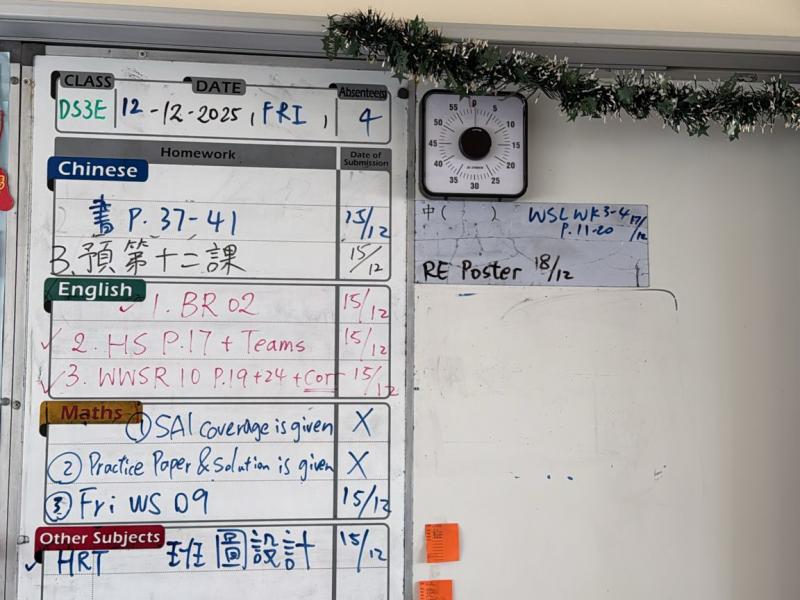 CLASS DATE Absentees
DS3E 12-12-2025, FRI, 4
Homework Date of Submission
Chinese
書 P. 37-41 15/12
3.預第十二課 15/12
English
1. BR 02 15/12
2. HS P.17 + Teams 15/12
3. WWSR 10 P.19+24 + Cor 15/12
Maths
① SA1 coverage is given X
② Practice Paper & Solution is given X
③ Fri WS 09 15/12
Other Subjects
HRT 班圖設計 15/12
55 0 5
50 10
45 15
40 20
35 30 25
中( ) WSL WK3-4 17/12
P.11-20
RE Poster 18/12